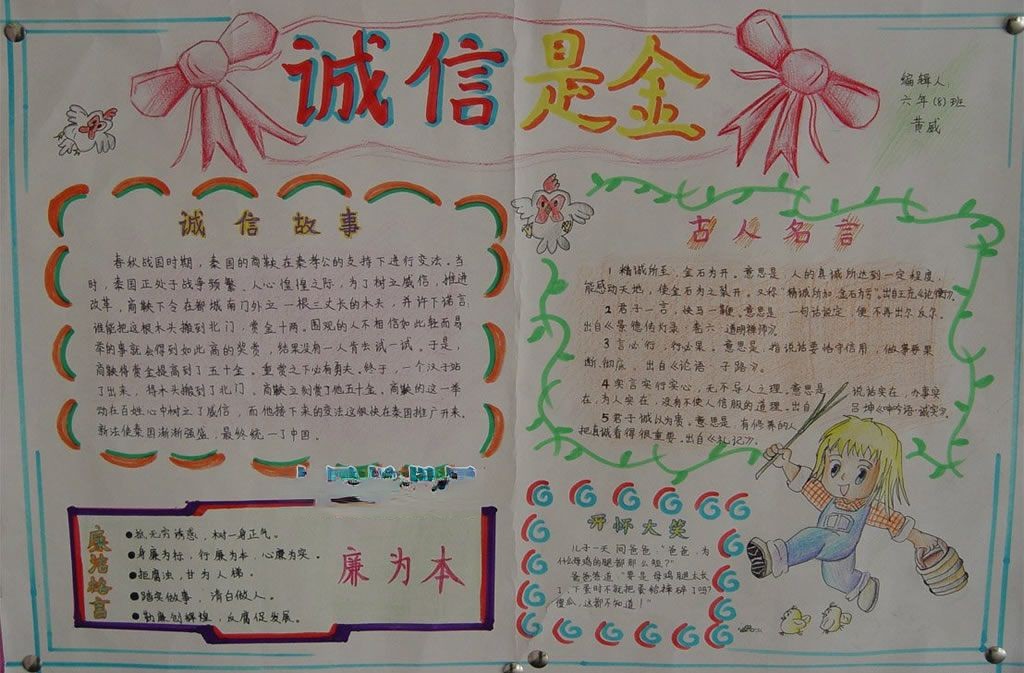 诚信是金
编辑人:
六年(8)班
黄威
诚信故事
春秋战国时期，秦国的商鞅在秦孝公的支持下进行变法。当
时，秦国正处于战争频繁、人心惶惶之际，为了树立威信，推进
改革，商鞅下令在都城南门外立一根三丈长的木头，并许下诺言:
谁能把这根木头搬到北门，赏金十两。围观的人不相信如此轻而易
举的事就会得到如此高的奖赏，结果没有一人肯出试一试。于是，
商鞅将赏金提高到了五十金。重赏之下必有勇夫。终于，一个汉子站
了出来，将木头搬到了北门。商鞅立刻赏了他五十金。商鞅的这一举
动在百姓心中树立了威信，而他接下来的变法这便快在秦国推广开来。
新法使秦国渐渐强盛，最终统一了中国。
古人名言
1 精诚所至，金石为开。意思是，人的真诚所达到一定程度，
能感动天地，使金石为之裂开。又称“精诚所加，金石为亏”。出自王充《论衡》。
2 君子一言，快马一鞭。意思是 一句话说定，便不再出尔反尔。
出自《景德传灯录·卷六·道明禅师》。
3 言必行，行必果。意思是，指说话要恪守信用，做事要果
断、彻底。出自《论语·子路》。
4 实言实行实心，无不孚人之理。意思是 说话实在，办事实
在，为人实在，没有不使人信服的道理。出自 吕坤《呻吟语·诚实》。
5 君子诚以为贵。意思是，有修养的人
把真诚看得很重要。出自《礼记》。
廉洁格言
●抵无穷诱惑，树一身正气。
●身廉为标，行廉为本，心廉为实。
●拒腐浊，甘为人梯。
●踏实做事，清白做人。
●勤廉创辉煌，反腐促发展。
廉为本
开怀大笑
儿子一天问爸爸，“爸爸，为
什么母鸡的腿都那么短？”
爸爸答道“要是母鸡腿太长
了，下蛋时不就把蛋给摔碎了吗？
傻瓜，这都不知道！”